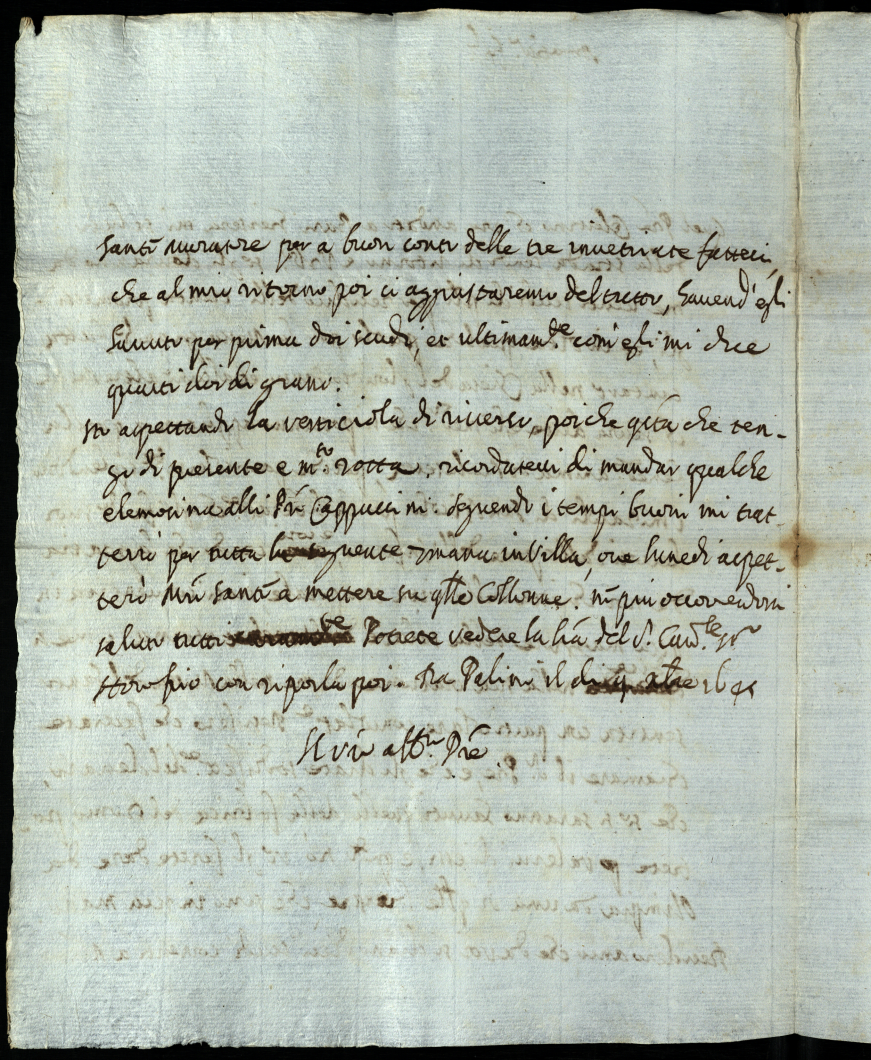 Santi Muratore per a buon conto delle tre invetriate fatteci,
che al mio ritorno poi ci aggiustaremo del tutto, havend' egli
havuto per prima doi scudi, et ultimamᵗᵉ com' egli mi dice
quarti doi di grano.
sto aspettando la vesticiola di riverso, poiche qᵗᵃ che ten-
go di presente e mᵗᵒ rotta, ricordatevi di mandar qualche
elemosina alli Prī Cappuccini. seguendo i tempi buoni mi trat-
terrò per tutta la seguente 7mana in Villa, ove lunedi aspet-
terò Mrō Santi a mettere su qˡˡᵉ Collonne. nē piu occorrendomi
saluto tutti Potrete vedere la lrā del S. Canᶜˡᵉ Sʳ
con riporla poi. Da il di 9 1645
Il vrō affᵐᵒ Prē